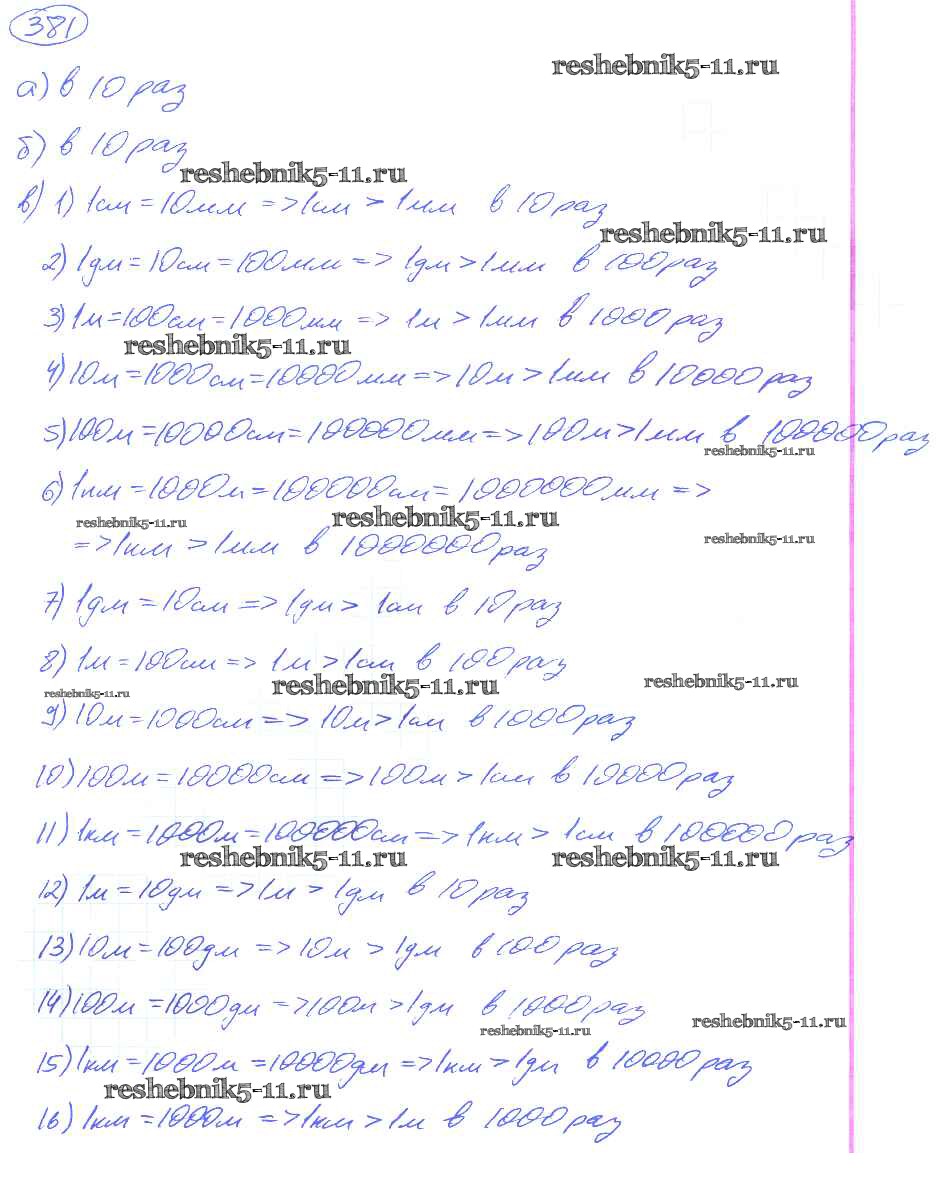 381
reshebnik5-11.ru
а) в 10 раз
б) в 10 раз
reshebnik5-11.ru
в) 1) 1см = 10мм => 1см > 1мм в 10 раз
reshebnik5-11.ru
2) 1дм = 10см = 100мм => 1дм > 1мм в 100 раз
3) 1м = 100см = 1000мм => 1м > 1мм в 1000 раз
reshebnik5-11.ru
4) 10м = 1000см = 10000мм => 10м > 1мм в 10000 раз
5) 100м = 10000см = 100000мм => 100м > 1мм в 100000 раз
reshebnik5-11.ru
6) 1км = 1000м = 100000см = 1000000мм =>
reshebnik5-11.ru
reshebnik5-11.ru
reshebnik5-11.ru
=> 1км > 1мм в 1000000 раз
7) 1дм = 10см => 1дм > 1см в 10 раз
8) 1м = 100см => 1м > 1см в 100 раз
reshebnik5-11.ru
reshebnik5-11.ru
reshebnik5-11.ru
9) 10м = 1000см => 10м > 1см в 1000 раз
10) 100м = 10000см => 100м > 1см в 10000 раз
11) 1км = 1000м = 100000см => 1км > 1см в 100000 раз
reshebnik5-11.ru
reshebnik5-11.ru
12) 1м = 10дм => 1м > 1дм в 10 раз
13) 10м = 100дм => 10м > 1дм в 100 раз
14) 100м = 1000дм => 100м > 1дм в 1000 раз
reshebnik5-11.ru
reshebnik5-11.ru
15) 1км = 1000м = 10000дм => 1км > 1дм в 10000 раз
reshebnik5-11.ru
16) 1км = 1000м => 1км > 1м в 1000 раз